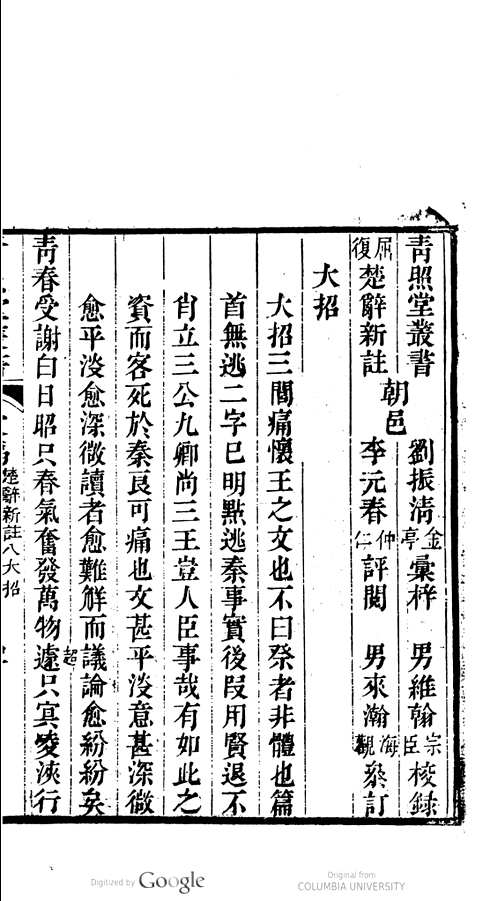 青照堂叢書 劉振清金亭彙梓 男維翰宗臣校錄
屈復楚辭新註 朝邑 李元春仲仁評閱 男來瀚海觀叅訂
大招
大招三閭痛懷王之文也不曰祭者非體也篇
首無逃二字已明點逃秦事實後段用賢退不
肖立三公九卿尚三王豈人臣事哉有如此之
資而客死於秦良可痛也文甚平淡意甚深微
愈平淡愈深微讀者愈難解而議論愈紛紛矣
青春受謝白日昭只春氣奮發萬物遽超只冥凌浹行
楚辭新註八大招
Digitized by Google
Original from
COLUMBIA UNIVERSITY